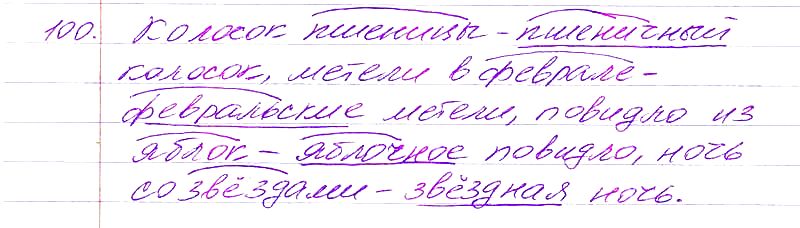 100. Колосок пшеницы – пшеничный
колосок, метели в феврале –
февральские метели, повидло из
яблок – яблочное повидло, ночь
со звёздами – звёздная ночь.